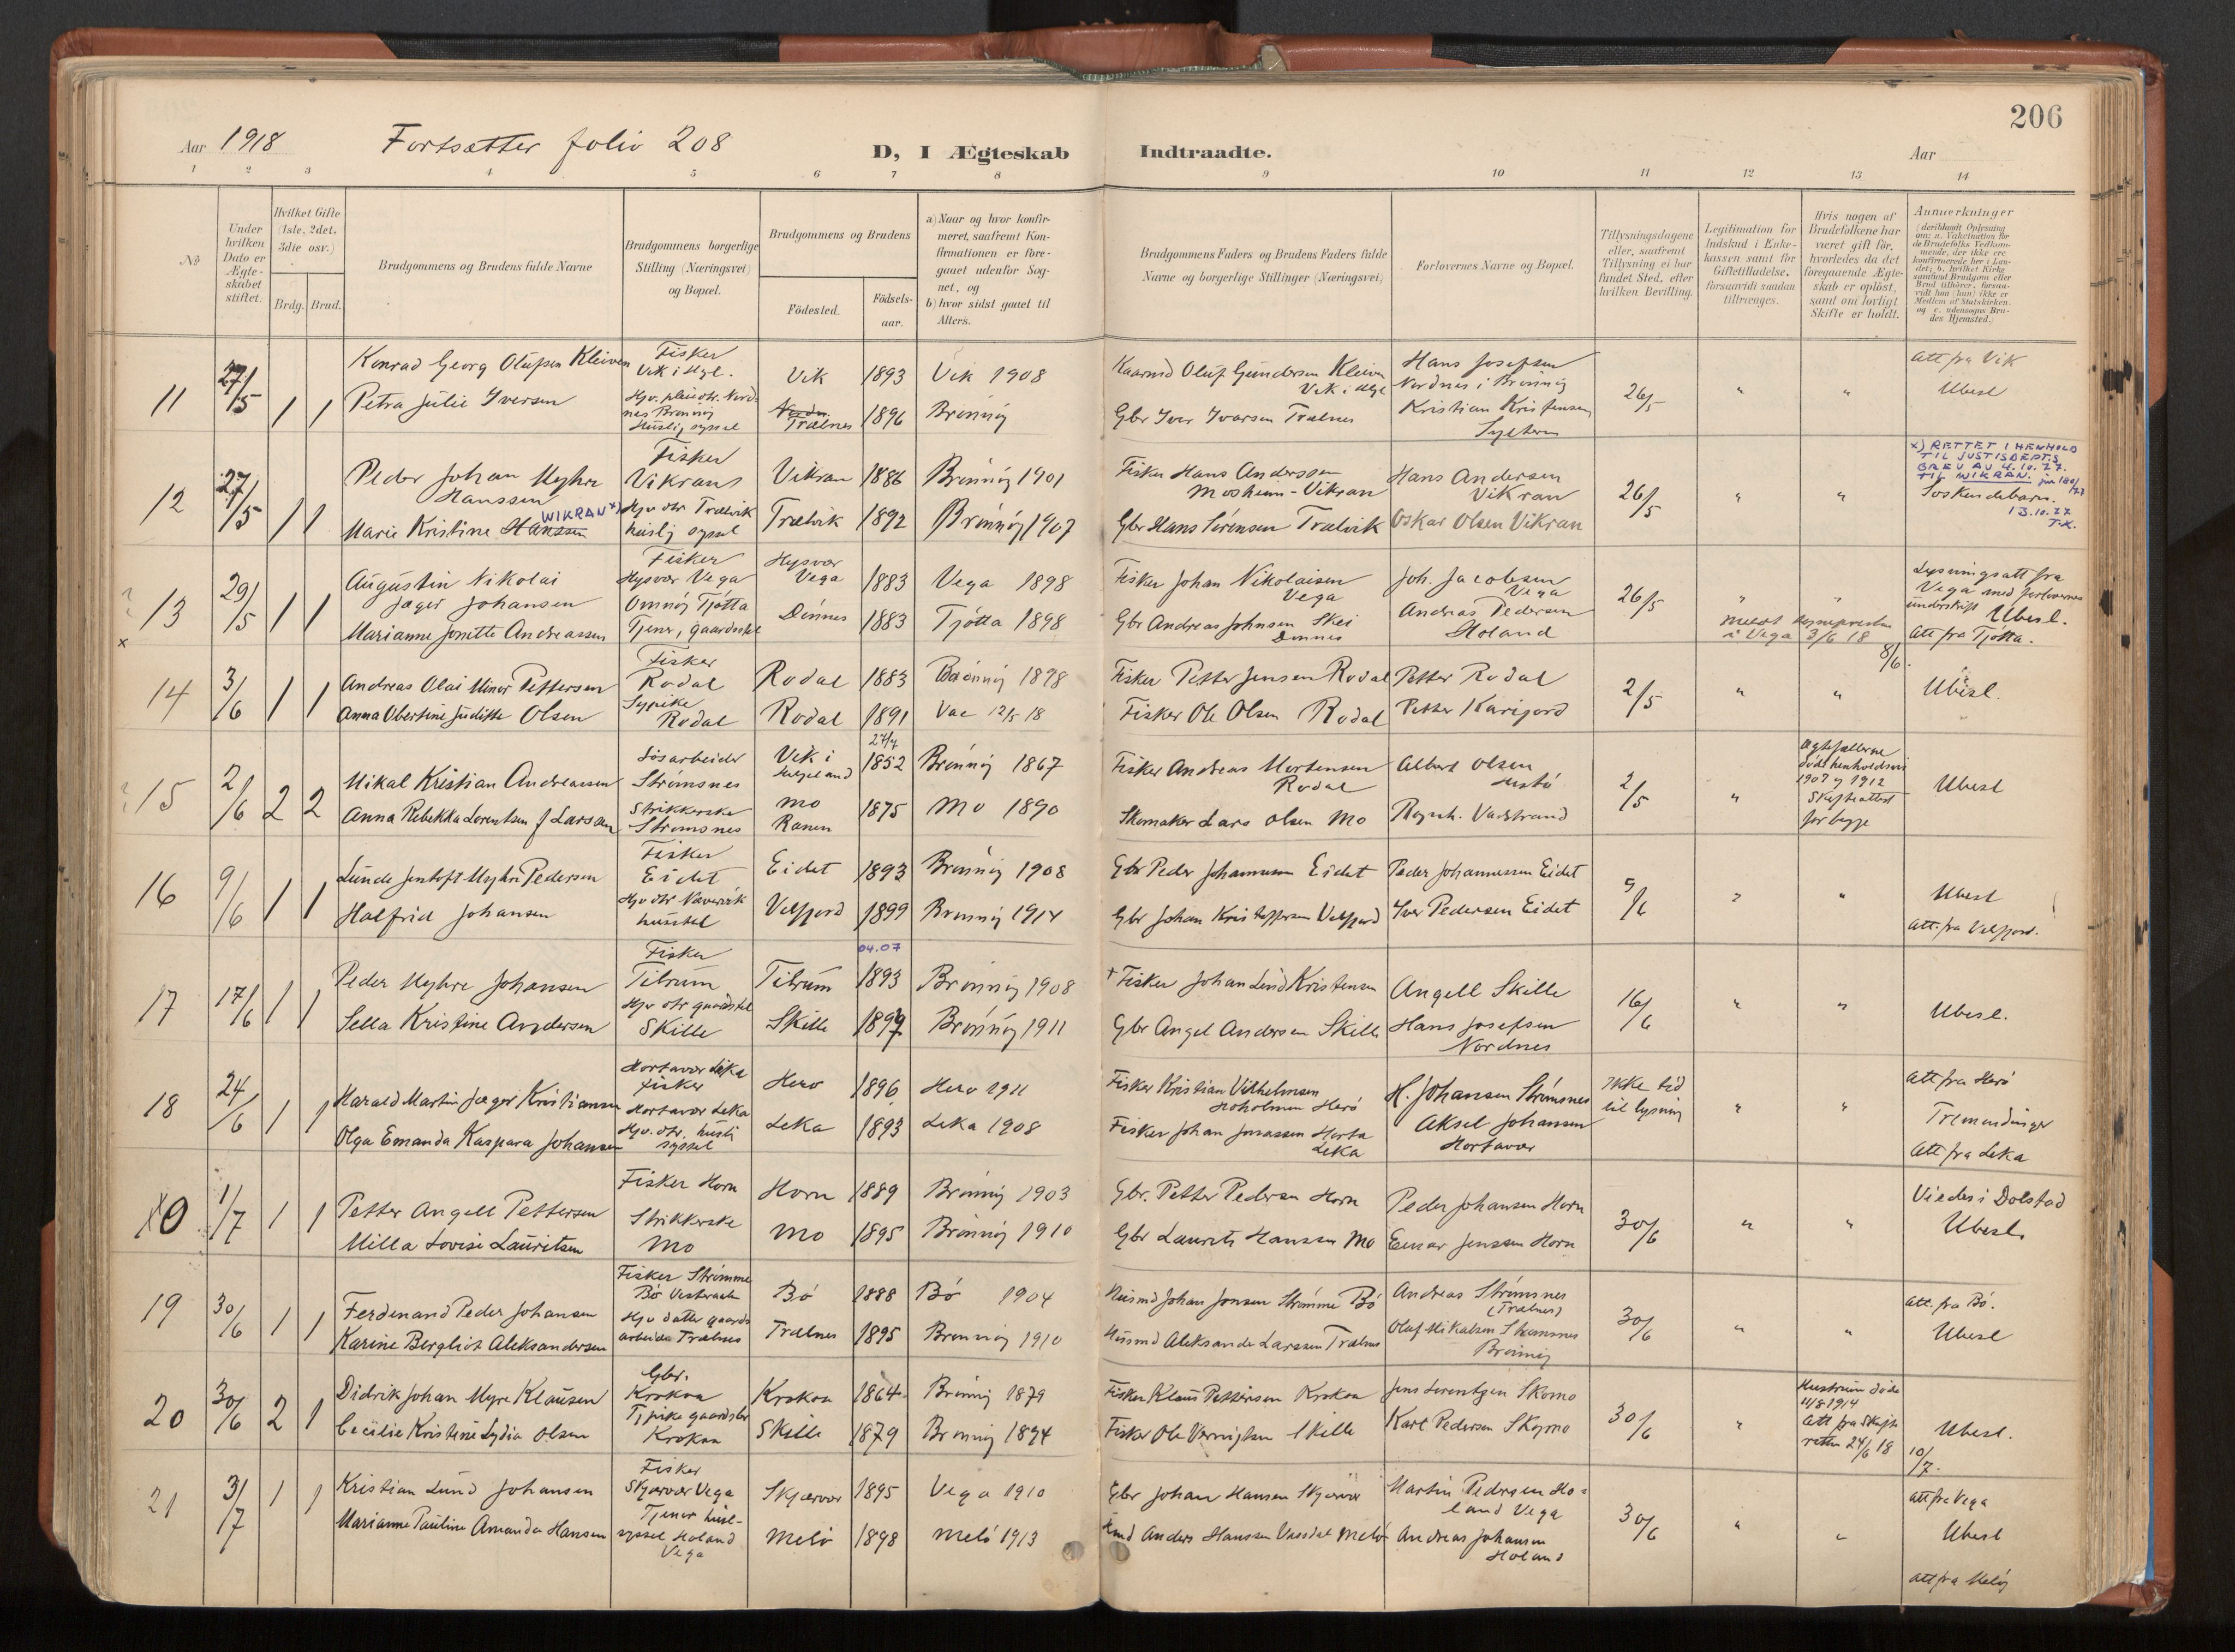 206
Aar 1918 Fortsætter folio 208
D, I Ægteskab Indtraadte.
Aar
1 2 3 4 5 6 7 8 9 10 11 12 13 14
No
Under hvilken Dato er Ægte-skabet stiftet.
Hvilket Gifte (1ste, 2det. 3die osv.)
Brdg. Brud.
Brudgommens og Brudens fulde Navne
Brudgommens borgerlige Stilling (Næringsvei) og Bopæl.
Brudgommens og Brudens
Födested.
Födsels-aar.
a) Naar og hvor konfir-meret, saafremt Kon-firmationen er fore-gaaet udenfor Sog-net, og
b) hvor sidst gaaet til Alters.
Brudgommens Faders og Brudens Faders fulde Navne og borgerlige Stillinger (Næringsvei)
Forlovernes Navne og Bopæl.
Tillysningsdagene eller, saafremt Tillysning ei har fundet Sted, efter hvilken Bevilling.
Legitimation for Indskud i Enke-kassen samt for Giftetilladelse, forsaavidt saadan tiltrænges.
Hvis nogen af Brudefolkene har været gift för, hvorledes da det foregaaende Ægte-skab er oplöst, samt om lovligt Skifte er holdt.
Anmerkninger
11 27/5 1 1
Konrad Georg Olufsen Kleiven
Fisker
Vik i Hgl.
Vik 1893 Vik 1908
Kaarmd Oluf Gundersen Kleiven
Vik i Hlge
Hans Josefsen
Nordnes i Brønnøy
26/5 " "
Att fra Vik
Ubesl
Petra Julie Iversen
Nordnes Brønnøy
Huslig syssel
Trælnes 1896 Brønnøy
Gbr Iver Ivarsen Trælnes
Kristian Kristensen
12 27/5 1 1
Peder Johan Myhre
Hanssen
Fisker
Vikran
Vikran 1886 Brønnøy 1901
Fisker Hans Anderssen
Mosheim - Vikran
Hans Andersen
Vikran
26/5 " "
x) RETTET I HENHOLD
TIL JUSTISDEPTS
BREV AV 4.10.27.
TIL WIKRAN.
Søskendebarn.
13.10.27
T.K.
WIKRAN x)
Marie Kristine Hanssen
Hjv dtr Trælvik
huslig syssel
Trælvik 1892 Brønnøy 1907
Gbr Hans Sørensen Trælvik
Oskar Olsen Vikran
13 29/5 1 1
x
Augustin Nikolai
Jæger Johansen
Fisker
Hysvær Vega
Hysvær
Vega
1883 Vega 1898
Fisker Johan Nikolaisen
Vega
Joh. Jacobsen
Vega
26/5 " "
Lysningsatt fra
Vega med forlovernes
underskrift Ubesl.
Marianne Jonette Andreassen
Omnøy Tjøtta
Tjener, gaardsstel
Dønnes 1883 Tjøtta 1898
Gbr Andreas Johnsen Skei
Dønnes
Andreas Pedersen
Holand
meldt sognepresten
i Vega 3/6 18
Att fra Tjøtta.
8/6.
14 3/6 1 1
Andreas Olai Minor Pettersen
Fisker
Rodal
Rodal 1883 Brønnøy 1898
Fisker Petter Jensen Rodal
Petter Rodal
2/5 " "
Ubesl.
Anna Obertine Juditte Olsen
Sypike
Rodal
Rodal 1891 Vac 12/5 18
Fisker Ole Olsen Rodal
Petter Karijord
27/7
15 2/6 2 2
Mikal Kristian Andreassen
Løsarbeider
Strømsnes
Vik i
Helgeland
1852 Brønnøy 1867
Fisker Andreas Mortensen
Rodal
Albert Olsen
2/5 "
Ægtefællerne
døde henholdsvis
1907 og 1912
Skifteattest
for begge
Ubesl
Anna Rebekka Lorentsen f Larssen
Strikkerske
Strømsnes
Mo
Ranen
1875 Mo 1890
Skomaker Lars Olsen Mo
16 9/6 1 1
Lunde Jentoft Myhre Pedersen
Fisker
Eidet
Eidet 1893 Brønnøy 1908
Gbr Peder Johannesen Eidet
Peder Johannessen Eidet
9/6 " "
Ubesl
Halfrid Johansen
husstel
Velfjord 1899 Brønnøy 1914
Gbr Johan Kristoffersen Velfjord
Iver Pedersen Eidet
Att. fra Velfjord.
04.07
17 17/6 1 1
Peder Myhre Johansen
Fisker
Tilrum
Tilrum 1893 Brønnøy 1908
+ Fisker Johan Lind Kristensen
Angell Skille
16/6 " "
Ubesl.
Sella Kristine Andersen
Hjv dtr gaardsstel
Skille
Skille 1897 Brønnøy 1911
Gbr Angel Andersen Skille
Hans Josefsen
Nordnes
18 24/6 1 1
Harald Martin Jæger Kristiansen
Hortavær Leka
fisker
Herø 1896 Herø 1911
Fisker Kristian Vilhelmsen
Hoholmen Herø
H. Johansen Strømsnes
Ikke tid
til lysning
" "
Att fra Herø
Tremendinger
Olga Emanda Kaspara Johansen
Hortavær Leka
Hjv. dtr. husli
syssel
Leka 1893 Leka 1908
Fisker Johan Jonassen Horta
Leka
Aksel Johansen
Hortavær
Att fra Leka
0 1/7 1 1
Petter Angell Pettersen
Fisker Horn
Horn 1889 Brønnøy 1903
Gbr. Petter Pedersen Horn
Peder Johansen Horn
30/6 " "
Viedes i Dolstad
Ubesl.
Milla Lovise Lauritsen
Strikkerske
Mo
Mo 1895 Brønnøy 1910
Gbr Laurits Hanssen Mo
Einar Jenssen Horn
19 30/6 1 1
Ferdenand Peder Johansen
Fisker Strømme
Bø Vesteraalen
Bø 1888 Bø 1904
Husmd Johan Jonsen Strømme Bø
Andreas Strømsnes
(Trælnes)
30/6 " "
Att. fra Bø.
Ubesl
Karine Bergliot Aleksandersen
Hjv datter gaards
arbeide Trælnes
Trælnes 1895 Brønnøy 1910
Husmd Aleksander Larssen Trælnes
Olaf Mikalsen Strømsnes
Brønnøy
20 30/6 2 1
Didrik Johan Myre Klausen
Gbr.
Krokaa
Krokaa 1864 Brønnøy 1879
Fisker Klaus Pettersen Krokaa
Jens Lorentzen Skomo
30/6 "
Hustruen døde
11/8 1914
Att fra skifte
retten 24/6 18
Ubesl.
Cecilie Kristine Lydia Olsen
Krokaa
Skille 1879 Brønnøy 1894
Skille
Karl Pedersen
10/7.
21 3/7 1 1
Kristian Lund Johansen
Fisker
Skjærvær Vega
Skjærvær 1895 Vega 1910
Gbr Johan Hansen Skjærvær
Martin Pedersen Ho-
land Vega
30/6 " "
att fra Vega
Ubesl
Marianne Pauline Amanda Hansen
Tjener husl-
syssel Holand
Vega
Melø 1898 Melø 1913
Anders Hanssen Vassdal Melø
Andreas Johansen
Holand
Att fra Meløy